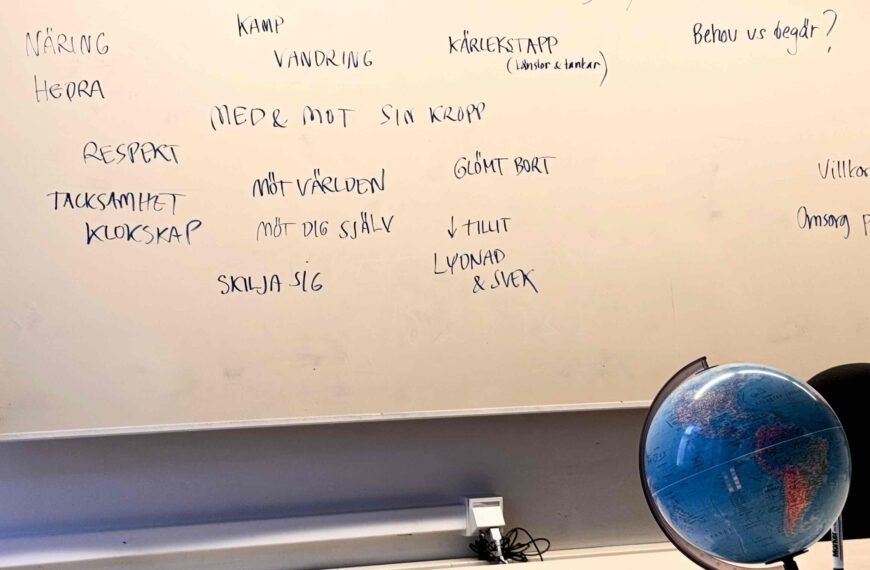 NÄRING
HEDRA
RESPEKT
TACKSAMHET
KLOKSKAP
KAMP
VANDRING
MED & MOT SIN KROPP
MÖT VÄRLDEN
MÖT DIG SJÄLV
SKILJA SIG
KÄRLEKSTAPP
(känslor & tankar)
GLÖMT BORT
↓ TILLIT
LYDNAD
& SVEK
Behov vs begär?
Omsorg